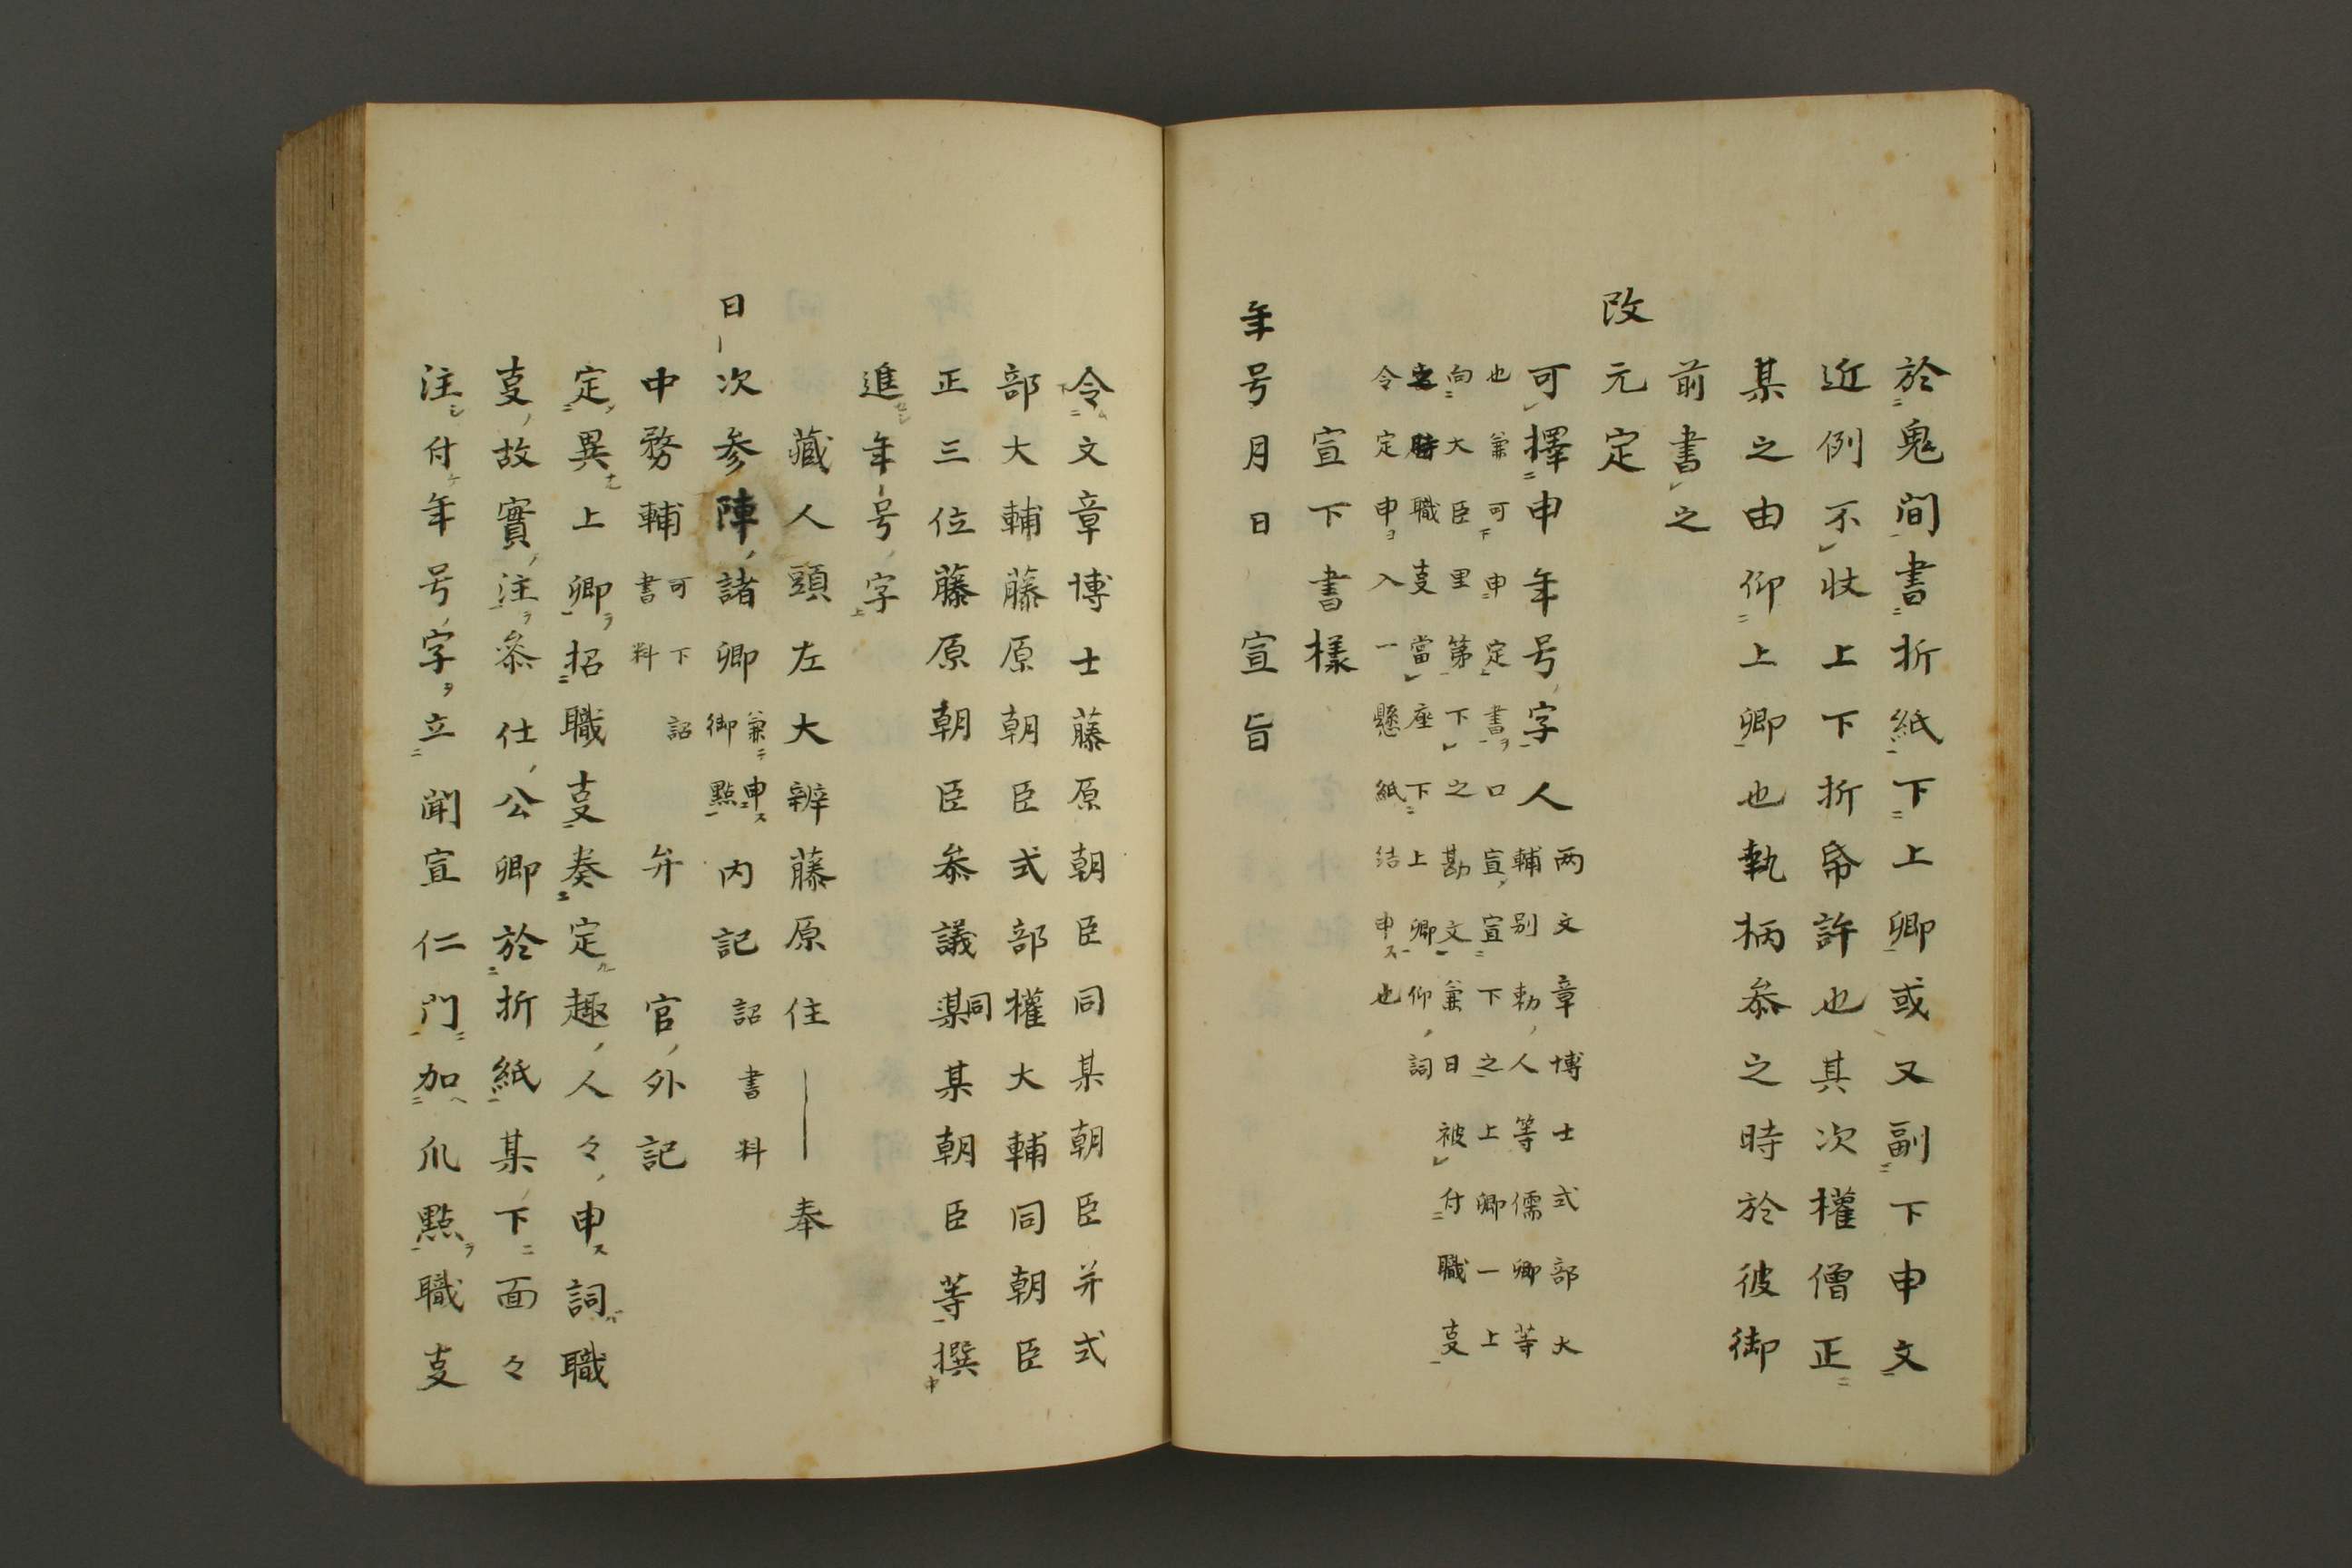 於鬼間書折紙下上卿或又副下申文
近例不收上下折帋許也其次權僧正
某之由仰上卿也執柄叅之時於彼御
前書之
改元定
可擇申年号字人
两文章博士式部大
輔別勅人等儒卿等
也兼可申定書口宣宣下之上卿一上
向大臣里第下之勘文兼日被付職㕝
之時職㕝當座下上卿仰詞
令定申入一懸紙結申也
宣下書樣
年号月日 宣旨
令文章博士藤原朝臣同某朝臣并式
部大輔藤原朝臣式部權大輔同朝臣
正三位藤原朝臣叅議某同某朝臣等撰
進年号字
藏人頭左大辨藤原住――奉
日次参陣諸卿兼申御點內記詔書料
中務輔可下詔書料弁官外記
定異上卿招職㕝奏定趣人々申詞職
㕝故實注叅仕公卿於折紙某下面々
注付年号字立聞宣仁門加爪點職㕝